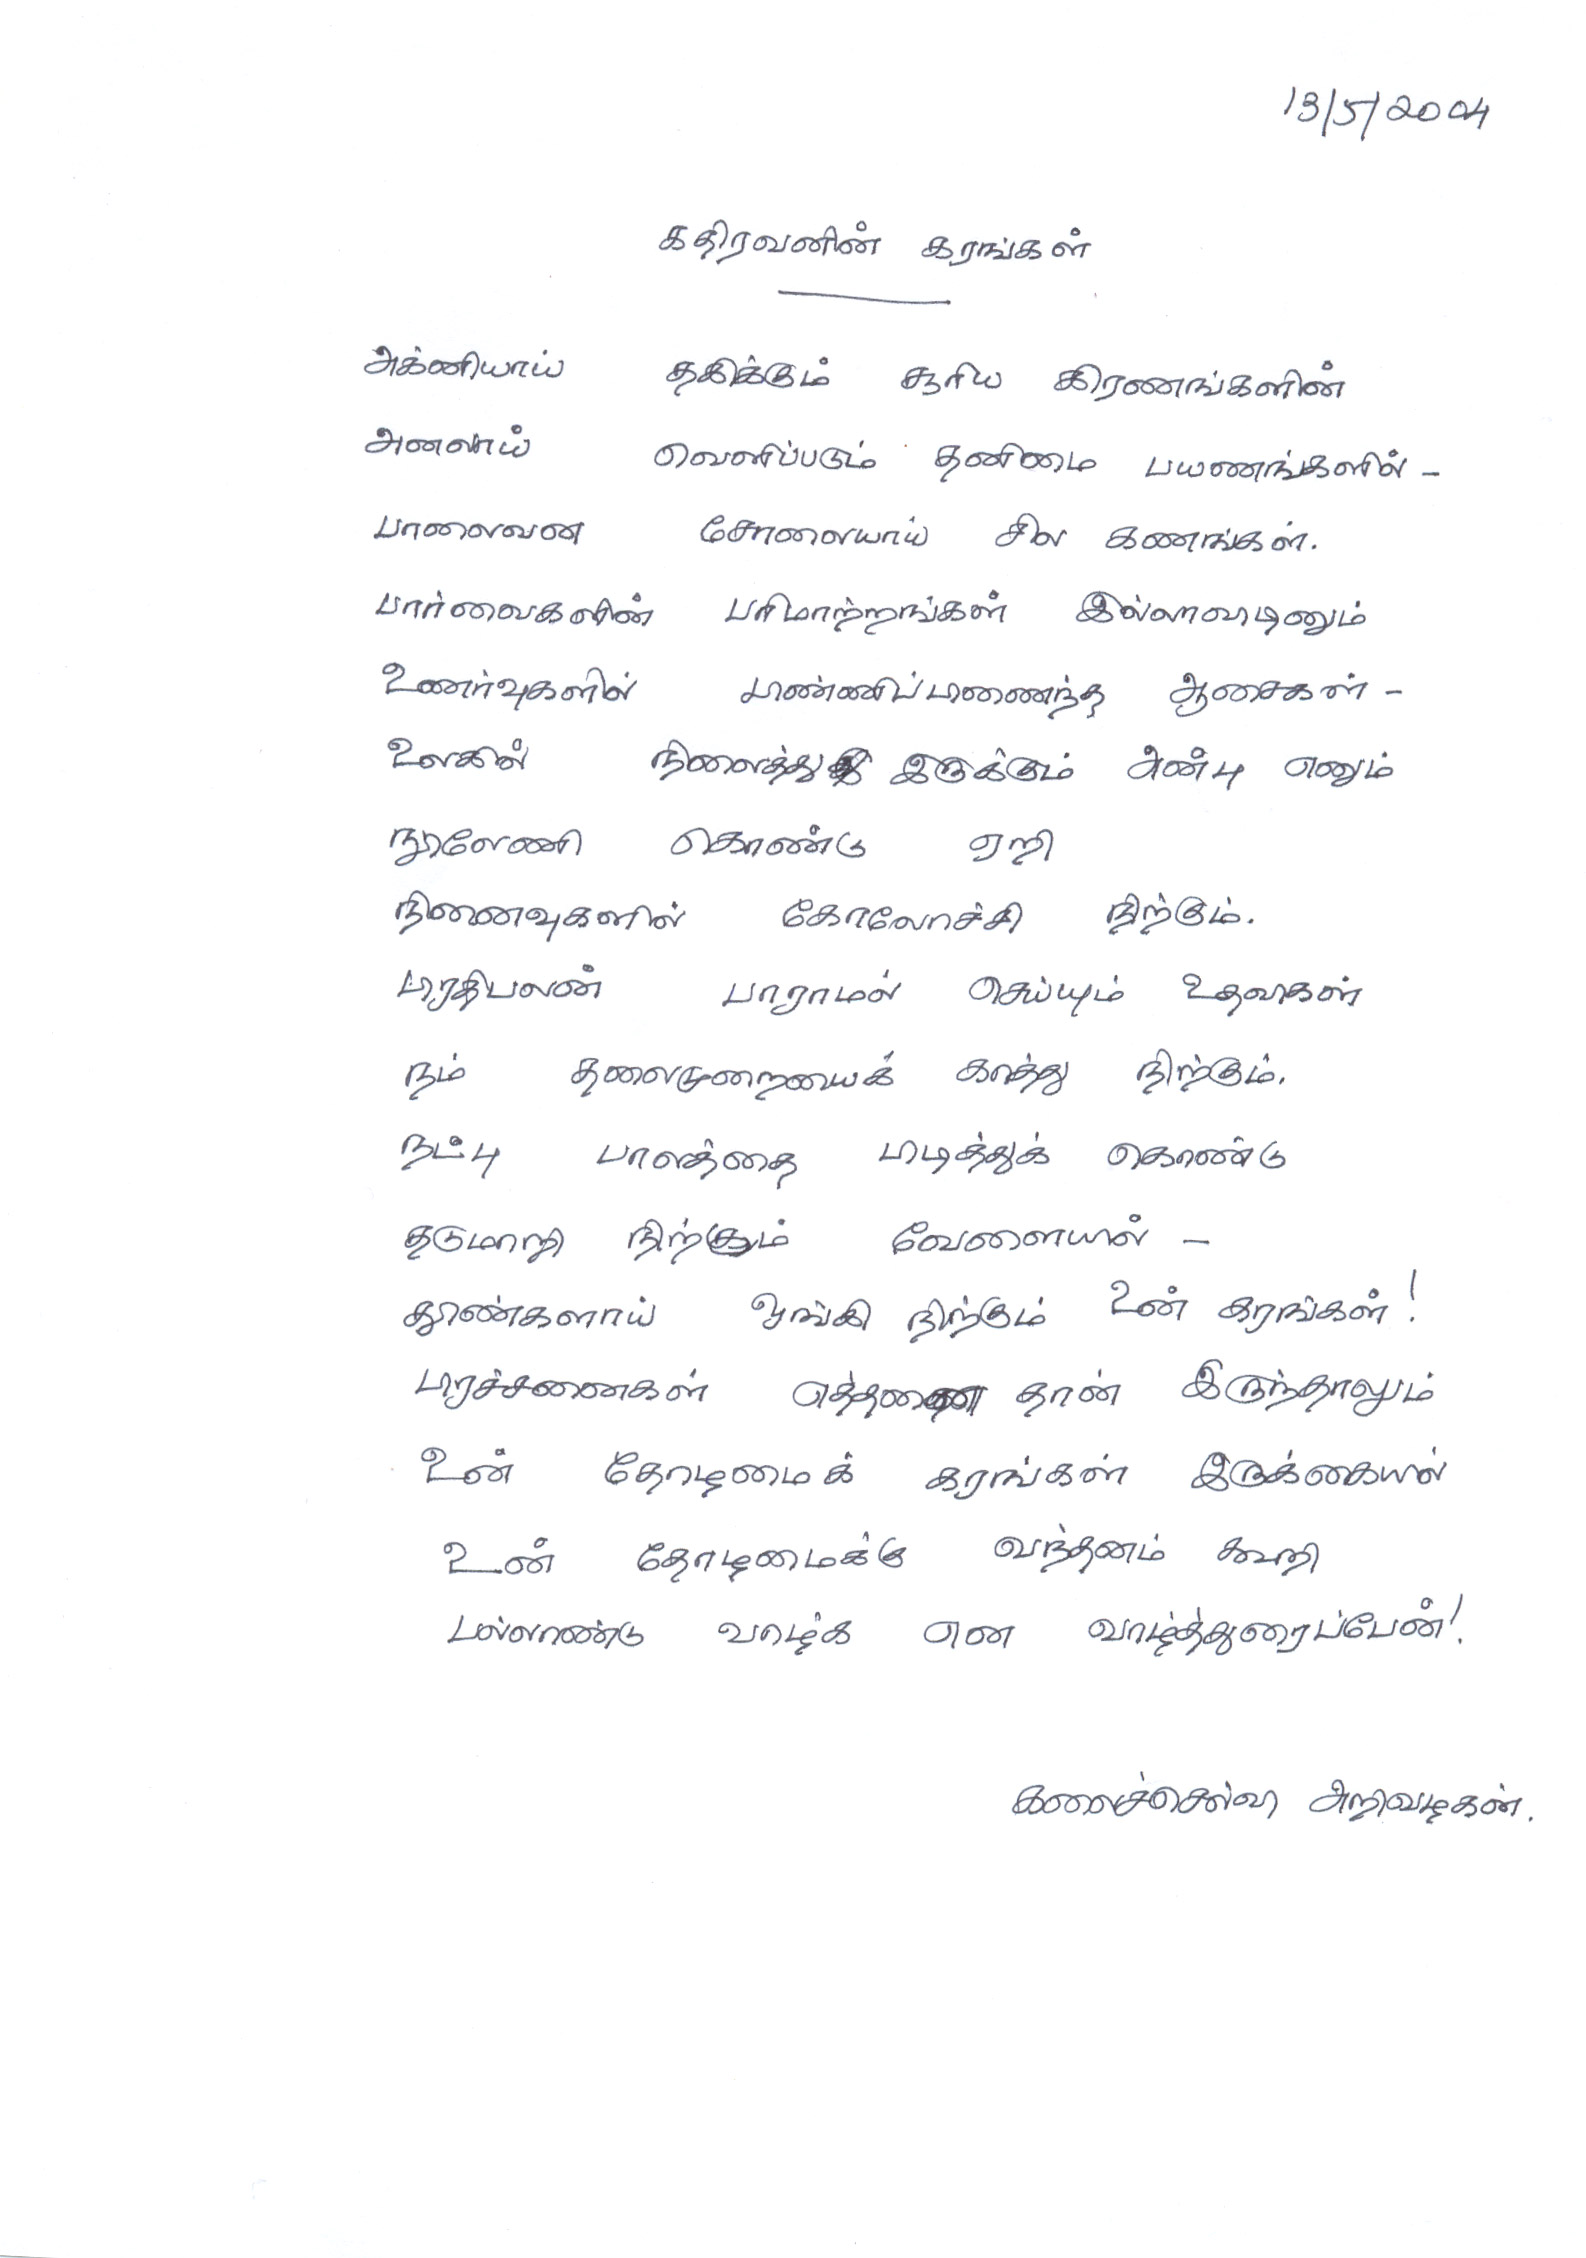 13/5/2004
கதிரவனின் கரங்கள்
அக்னியாய் தகிக்கும் சூரிய கிரணங்களின்
அனலாய் வெளிப்படும் தனிமை பயணங்களில் -
பாலைவன சோலையாய் சில கணங்கள்.
பார்வைகளின் பரிமாற்றங்கள் இல்லாவிடினும்
உணர்வுகளில் பின்னிப்பிணைந்த ஆசைகள் -
உலகில் நிலைத்து இருக்கும் அன்பு எனும்
நூலேணி கொண்டு ஏறி
நினைவுகளில் கோலோச்சி நிற்கும்.
பிரதிபலன் பாராமல் செய்யும் உதவிகள்
நம் தலைமுறையைக் காத்து நிற்கும்.
நட்பு பாலத்தை பிடித்துக் கொண்டு
தடுமாறி நிற்கும் வேளையில் -
தூண்களாய் தாங்கி நிற்கும் உன் கரங்கள்!
பிரச்சனைகள் எத்தனை தான் இருந்தாலும்
உன் தோழமைக் கரங்கள் இருக்கையில்
உன் தோழமைக்கு வந்தனம் கூறி
பல்லாண்டு வாழ்க என வாழ்த்துரைப்பேன்!
கலைச்செல்வி அறிவழகன்.